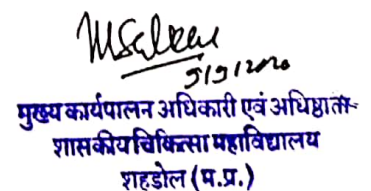 9/9/2020
मुख्य कार्यपालन अधिकारी एवं अधिष्ठाता
शासकीय चिकित्सा महाविद्यालय
शहडोल (म.प्र.)